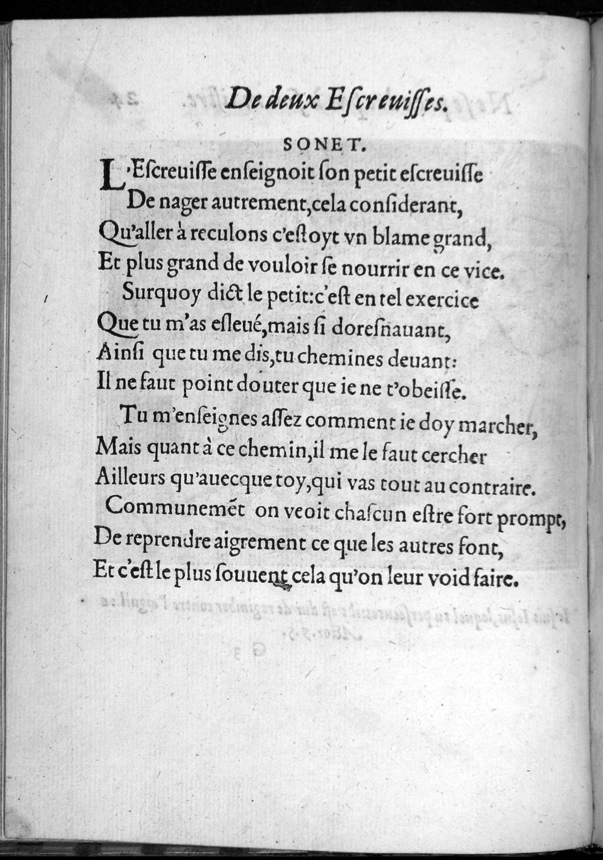 De deux Eſcreuiſſes.
SONET.
L'Eſcreuiſſe enſeignoit ſon petit eſcreuiſſe
De nager autrement,cela conſiderant,
Qu'aller à reculons c'eſtoyt vn blame grand,
Et plus grand de vouloir ſe nourrir en ce vice.
Surquoy dict le petit:c'eſt en tel exercice
Que tu m'as eſleué,mais ſi doreſnauant,
Ainſi que tu me dis,tu chemines deuant:
Il ne faut point douter que ie ne t'obeiſſe.
Tu m'enſeignes aſſez comment ie doy marcher,
Mais quant à ce chemin,il me le faut cercher
Ailleurs qu'auecque toy,qui vas tout au contraire.
Communemẽt on veoit chaſcun eſtre fort prompt,
De reprendre aigrement ce que les autres font,
Et c'eſt le plus ſouuent cela qu'on leur void faire.